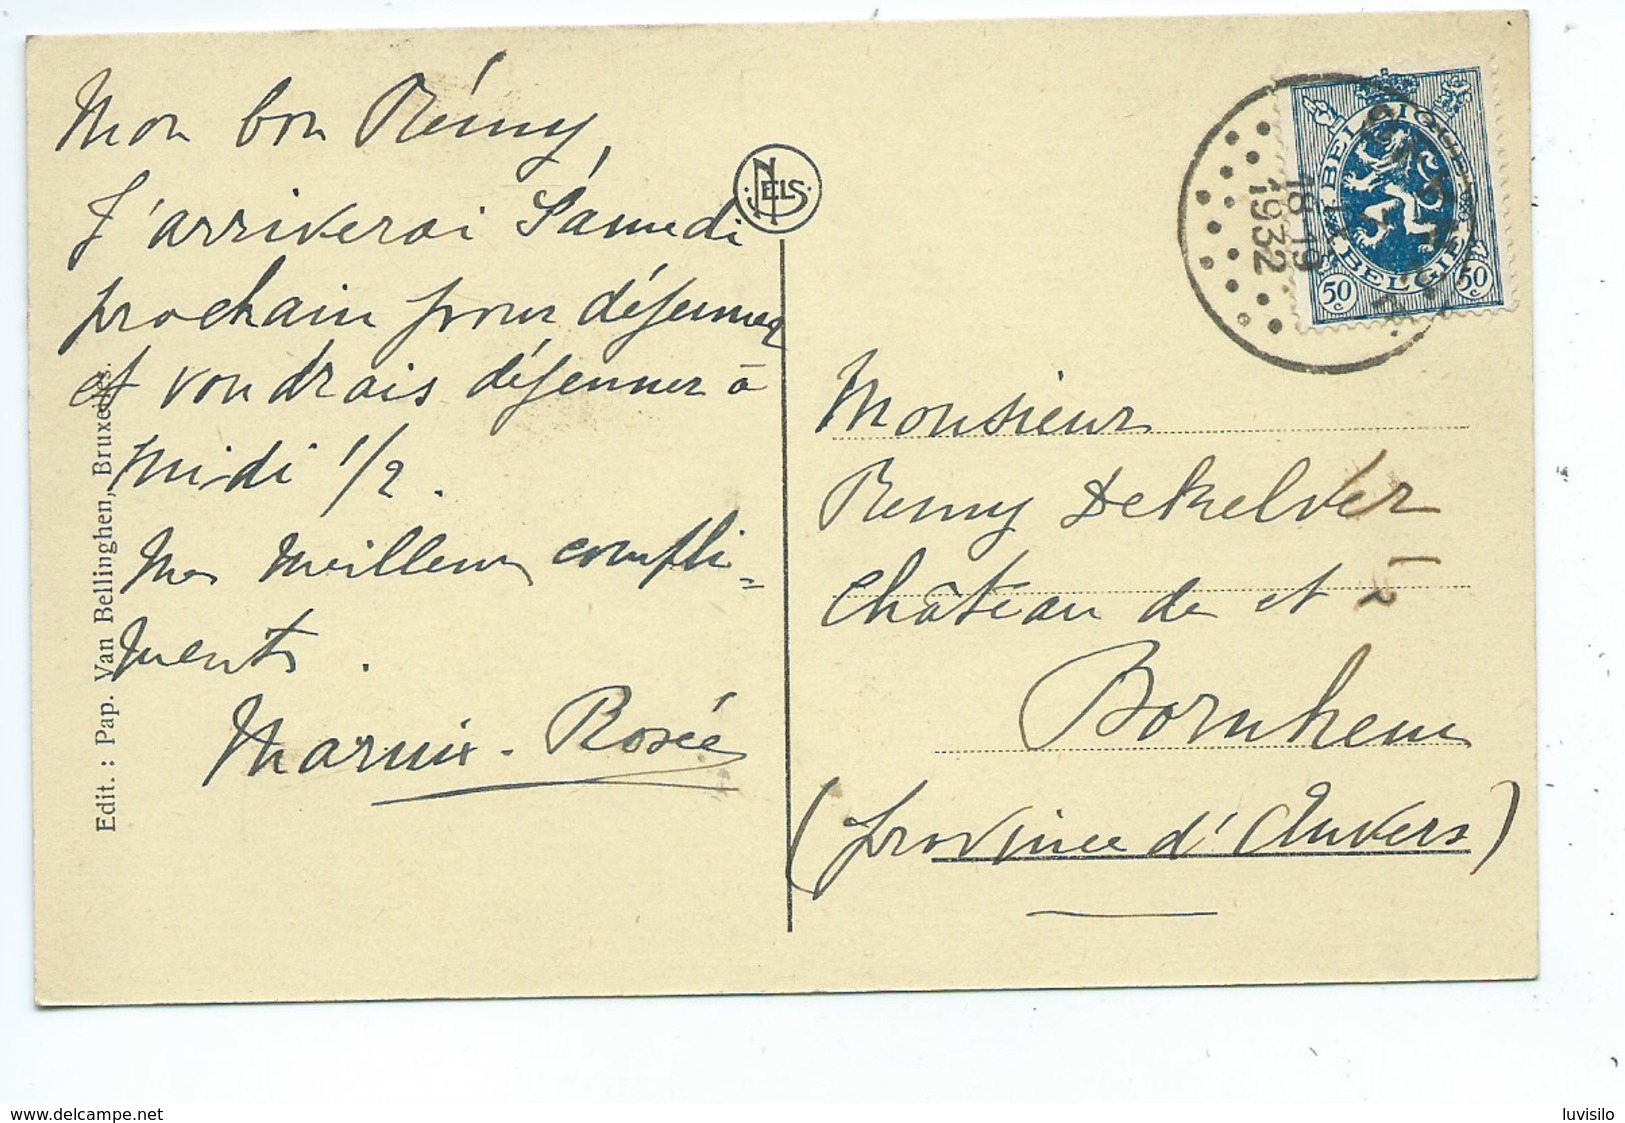 Mon bon Rémy,
J'arriverai Samedi
prochain pour déjeuner
et voudrais déjeuner à
midi 1/2.
Mes meilleurs compli=
ments.
Marnix-Rosée
Edit. : Pap. Van Bellinghen, Bruxelles.
NELS
BELGIQUE
BELGIE
50 c
50 c
18-19
1932
Monsieur
Remy DeKelver
Château de et à
Bornhem
(province d'Anvers)
www.delcampe.net
luvisilo